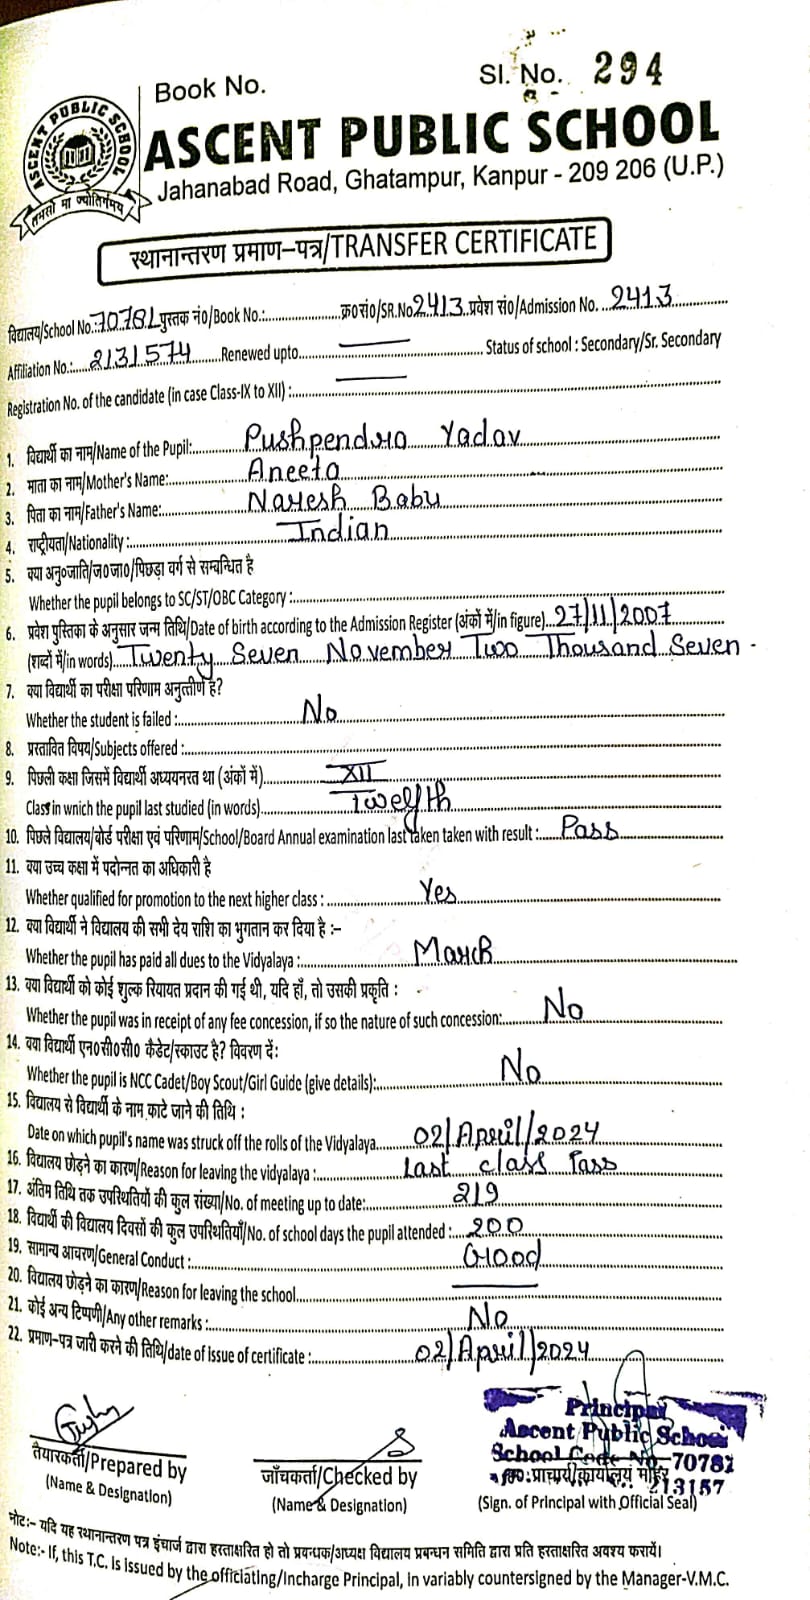 Book No.
Sl. No. 294
ASCENT PUBLIC SCHOOL
तमसो मा ज्योतिर्गमय
ASCENT PUBLIC SCHOOL
Jahanabad Road, Ghatampur, Kanpur - 209 206 (U.P.)
स्थानान्तरण प्रमाण-पत्र/TRANSFER CERTIFICATE
विद्यालय/School No.: 70781 पुस्तक नं०/Book No.: क्र०सं०/SR.No 2413 प्रवेश सं०/Admission No. 2413
Affiliation No.: 2131574 Renewed upto Status of school : Secondary/Sr. Secondary
Registration No. of the candidate (in case Class-IX to XII) :
1. विद्यार्थी का नाम/Name of the Pupil: Pushpendra Yadav
2. माता का नाम/Mother's Name: Aneeta
3. पिता का नाम/Father's Name: Naresh Babu
4. राष्ट्रीयता/Nationality : Indian
5. क्या अनु०जाति/ज०जा०/पिछड़ा वर्ग से सम्बन्धित है
Whether the pupil belongs to SC/ST/OBC Category :
6. प्रवेश पुस्तिका के अनुसार जन्म तिथि/Date of birth according to the Admission Register (अंकों में/in figure) 27/11/2007
(शब्दों में/in words) Twenty Seven November Two Thousand Seven -
7. क्या विद्यार्थी का परीक्षा परिणाम अनुत्तीर्ण है?
Whether the student is failed : No
8. प्रस्तावित विषय/Subjects offered :
9. पिछली कक्षा जिसमें विद्यार्थी अध्ययनरत था (अंकों में) XII
Class in wnich the pupil last studied (in words) Twelfth
10. पिछले विद्यालय/वोर्ड परीक्षा एवं परिणाम/School/Board Annual examination last taken taken with result : Pass
11. क्या उच्च कक्षा में पदोन्नत का अधिकारी है
Whether qualified for promotion to the next higher class : Yes
12. क्या विद्यार्थी ने विद्यालय की सभी देय राशि का भुगतान कर दिया है :-
Whether the pupil has paid all dues to the Vidyalaya : March
13. क्या विद्यार्थी को कोई शुल्क रियायत प्रदान की गई थी, यदि हाँ, तो उसकी प्रकृति :
Whether the pupil was in receipt of any fee concession, if so the nature of such concession: No
14. क्या विद्यार्थी एन०सी०सी० कैडेट/स्काउट है? विवरण दें:
Whether the pupil is NCC Cadet/Boy Scout/Girl Guide (give details): No
15. विद्यालय से विद्यार्थी के नाम काटे जाने की तिथि :
Date on which pupil's name was struck off the rolls of the Vidyalaya 02/April/2024
16. विद्यालय छोड़ने का कारण/Reason for leaving the vidyalaya : Last class Pass
17. अंतिम तिथि तक उपस्थितियों की कुल संख्या/No. of meeting up to date: 219
18. विद्यार्थी की विद्यालय दिवसों की कुल उपस्थितियाँ/No. of school days the pupil attended : 200
19. सामान्य आचरण/General Conduct : Good
20. विद्यालय छोड़ने का कारण/Reason for leaving the school
21. कोई अन्य टिप्पणी/Any other remarks : No
22. प्रमाण-पत्र जारी करने की तिथि/date of issue of certificate : 02/April/2024
Principal
Ascent Public School
School Code No-70781
213157
तैयारकर्ता/Prepared by
(Name & Designation)
जाँचकर्ता/Checked by
(Name & Designation)
ह०:प्राचार्य/कार्यालय मोहर
(Sign. of Principal with Official Seal)
नोट:- यदि यह स्थानान्तरण पत्र इंचार्ज द्वारा हस्ताक्षरित हो तो प्रवन्धक/अध्यक्ष विद्यालय प्रबन्धन समिति द्वारा प्रति हस्ताक्षरित अवश्य करायें।
Note:- If, this T.C. is issued by the officiating/Incharge Principal, in variably countersigned by the Manager-V.M.C.